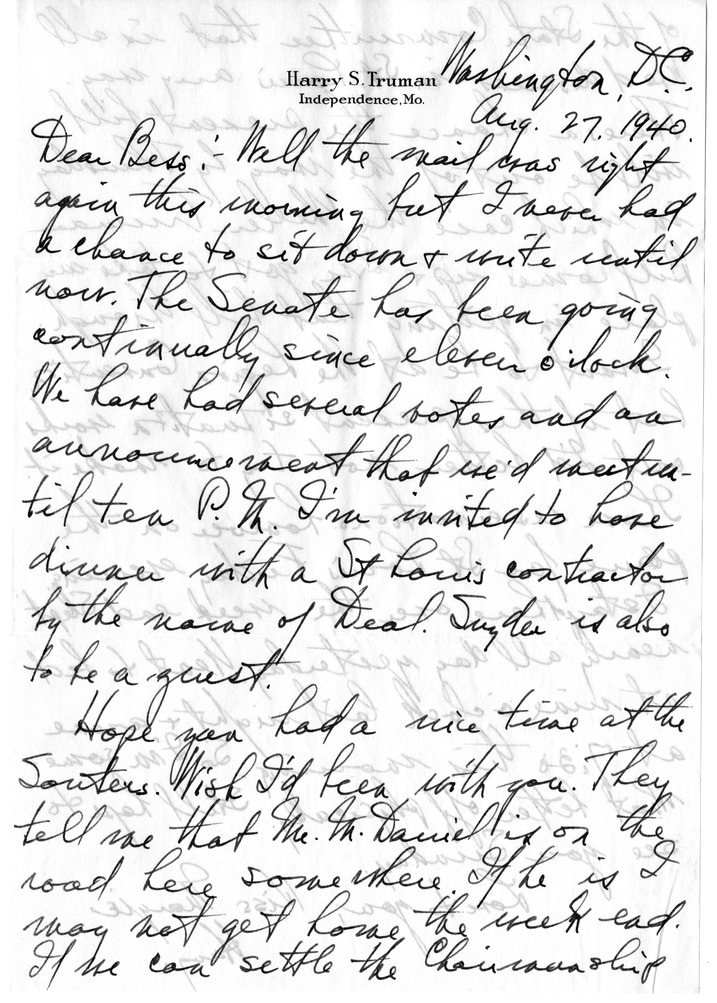 Harry S. Truman
Independence, Mo.
Washington, D.C.
Aug. 27, 1940.
Dear Bess:- Well the mail was right
again this morning but I never had
a chance to sit down & write until
now. The Senate has been going
continually since eleven o'clock.
We have had several votes and an
announcement that we'd meet un-
til ten P.M. I'm invited to have
dinner with a St Louis contractor
by the name of Deal. Snyder is also
to be a guest.
Hope you had a nice time at the
Souters. Wish I'd been with you. They
tell me that Mr. McDaniel is on the
road here somewhere. If he is I
may not get home the week end.
If we can settle the Chairmanship